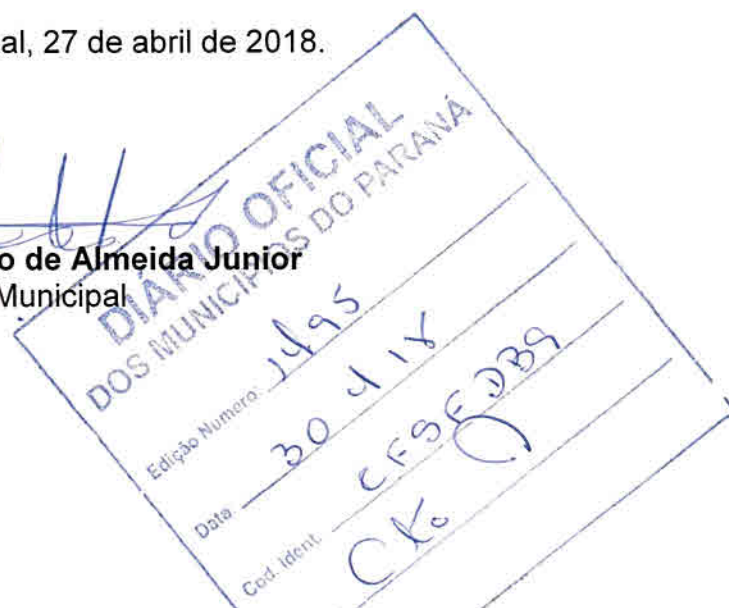 al, 27 de abril de 2018.
o de Almeida Junior
Municipal
DIÁRIO OFICIAL
DOS MUNICIPIOS DO PARANÁ
Edição Numero: 1495
Data 30 4 18
Cod. Ident. CF9EDB9